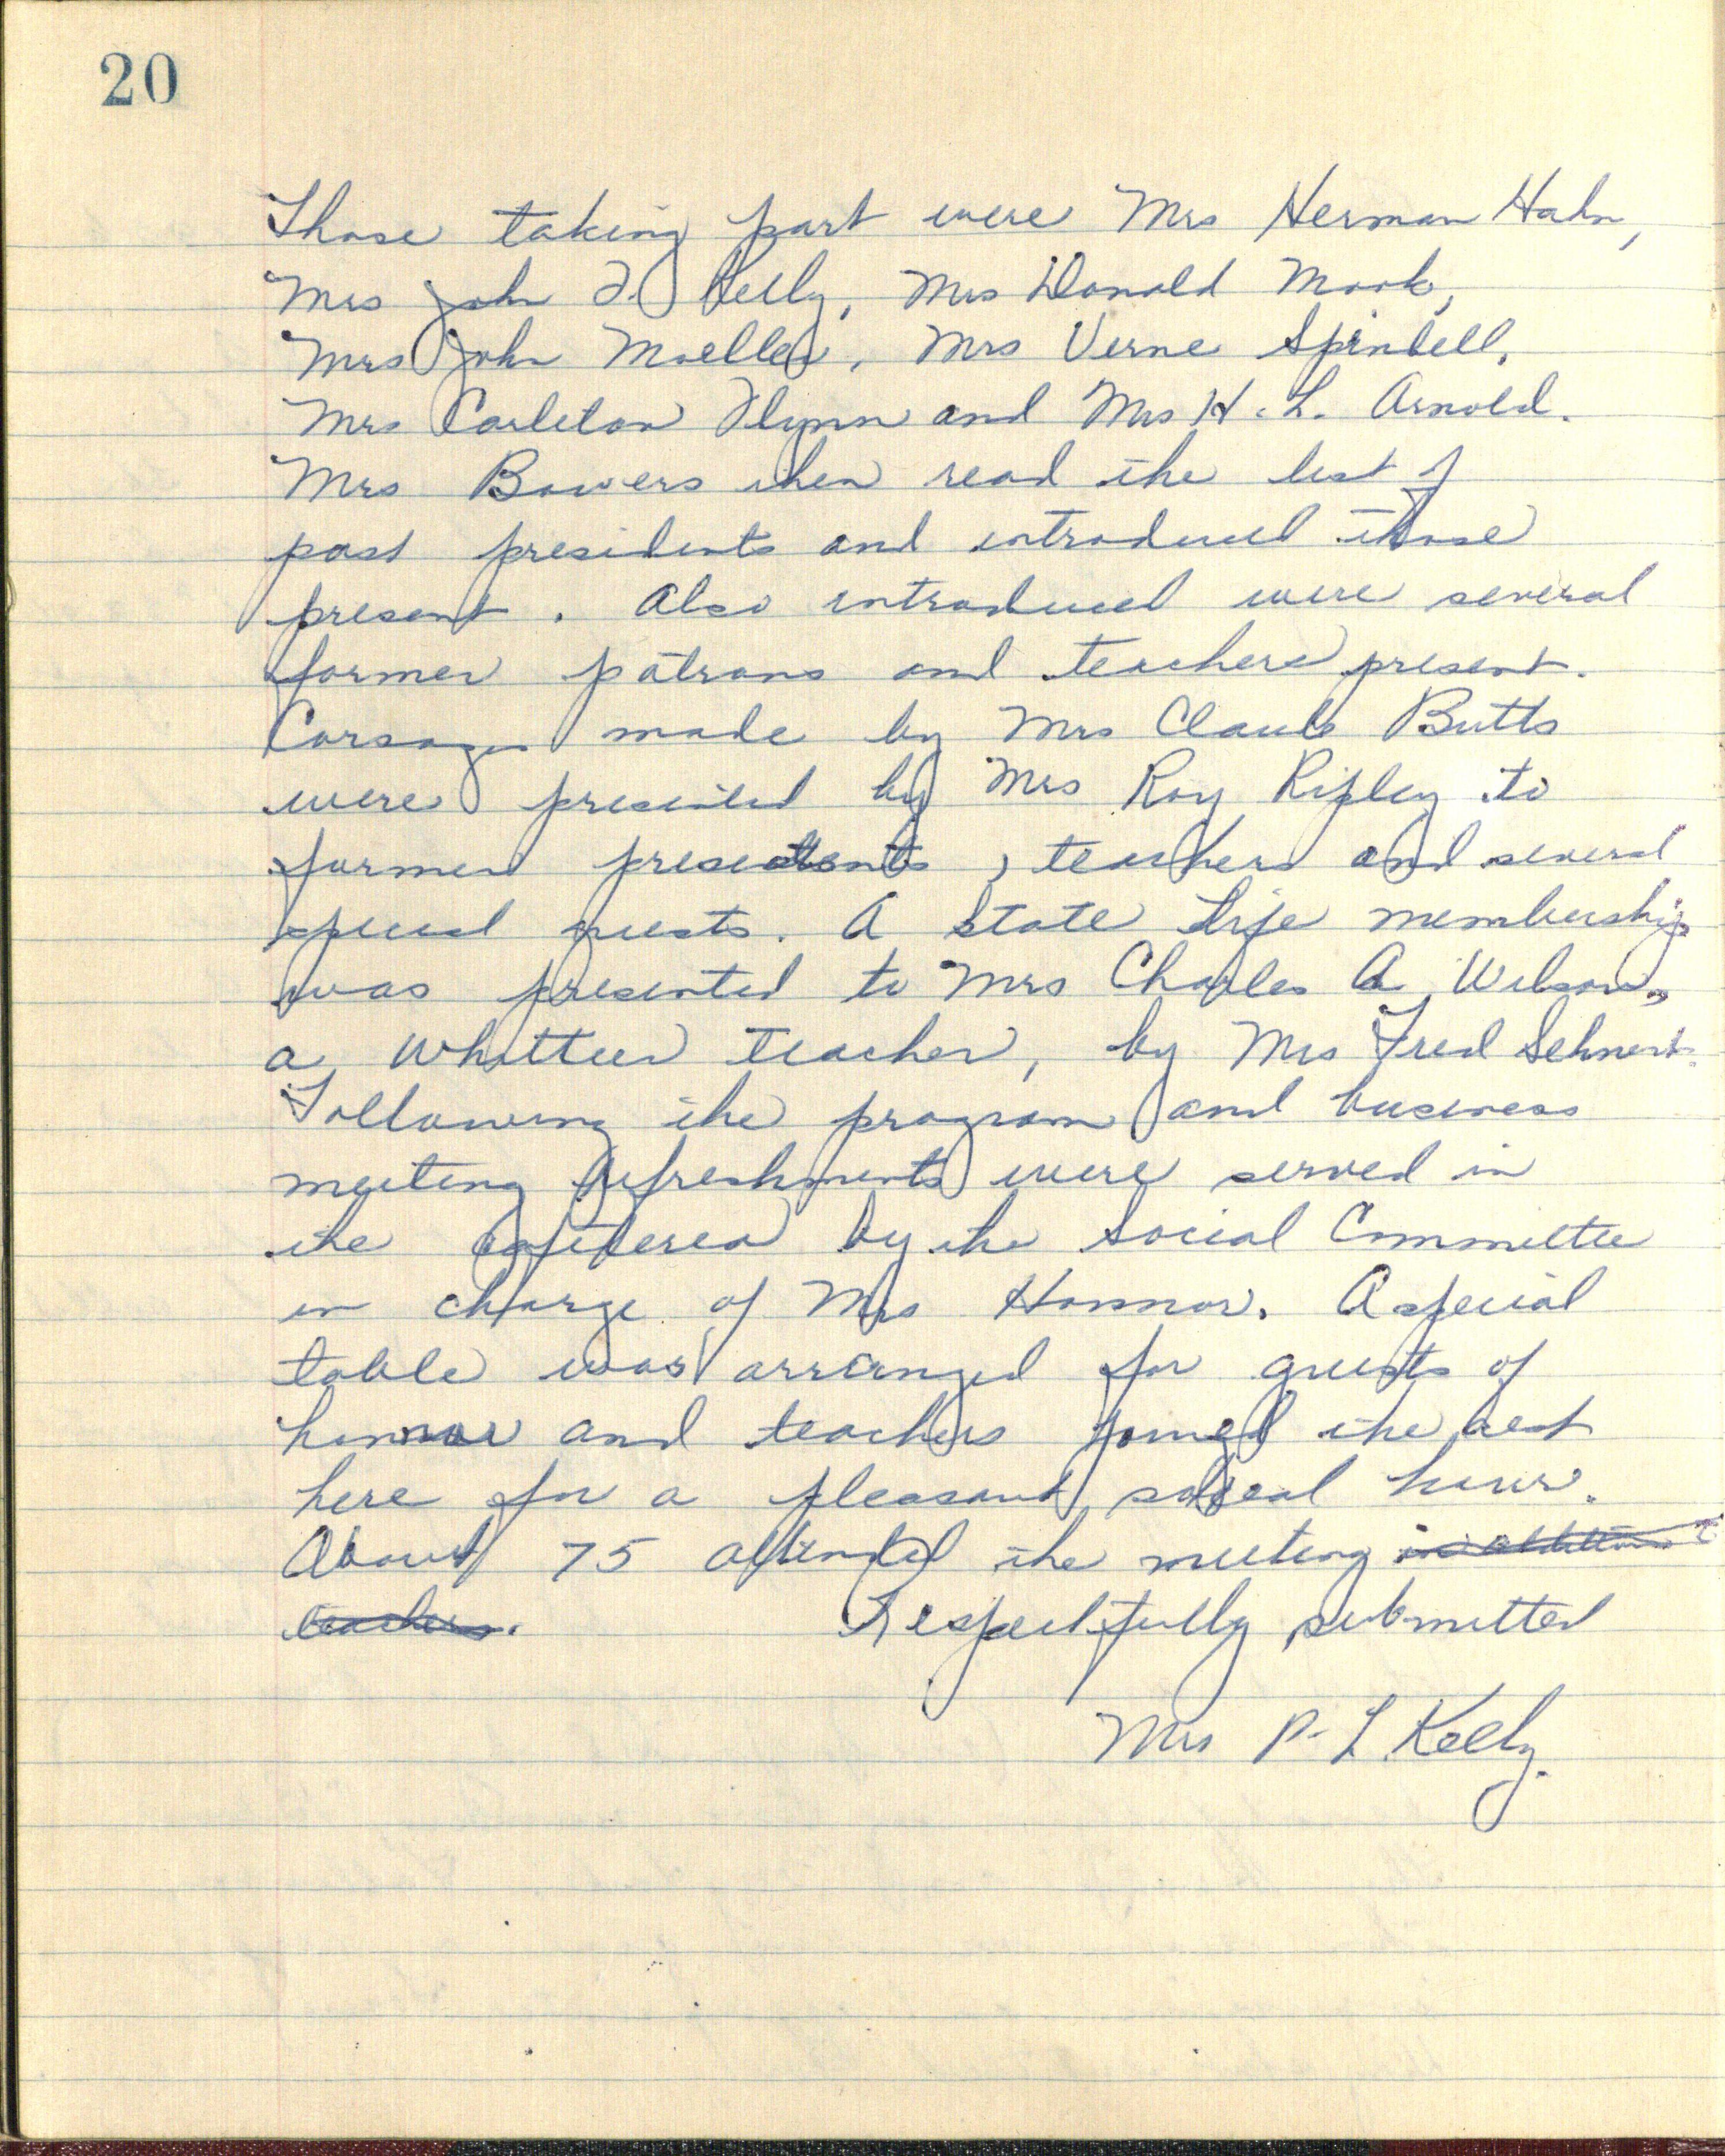 20
Those taking part were Mrs Herman Hahn,
Mrs John F. Kelly, Mrs Donald Mook,
Mrs John Moeller, Mrs Verne Spindell,
Mrs Carleton Flynn and Mrs H. L. Arnold.
Mrs Bowers then read the list of
past presidents and introduced those
present. Also introduced were several
former patrons and teachers present.
Corsages made by Mrs Claude Butts
were presented by Mrs Roy Ripley to
former presidents, teachers and several
special guests. A State Life membership
was presented to Mrs Charles A Wilson,
a Whittier teacher, by Mrs Fred Sehnert.
Following the program and business
meeting refreshments were served in
the cafeteria by the Social Committee
in charge of Mrs Honnor. A special
table was arranged for guests of
honor and teachers joined the rest
here for a pleasant social hour.
About 75 attended the meeting in addition to
teachers. Respectfully submitted
Mrs P. L. Kelly.